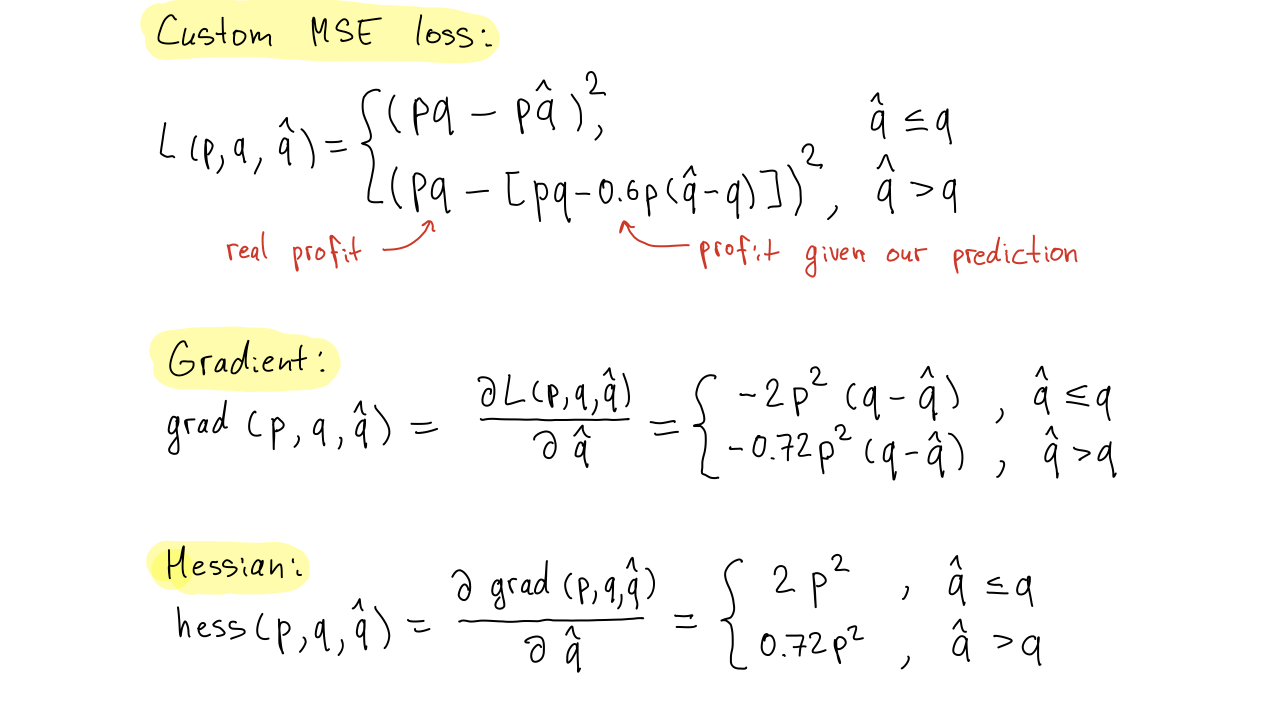 Custom MSE loss:
L(p,q,q̂) = { (pq − pq̂)², q̂ ≤ q
(pq − [pq−0.6p(q̂−q)])², q̂ > q
real profit profit given our prediction
Gradient:
grad (p,q,q̂) = ∂L(p,q,q̂) / ∂q̂ = { −2p² (q−q̂) , q̂ ≤ q
−0.72p² (q−q̂) , q̂ > q
Hessian:
hess(p,q,q̂) = ∂ grad (p,q,q̂) / ∂q̂ = { 2p² , q̂ ≤ q
0.72p² , q̂ > q